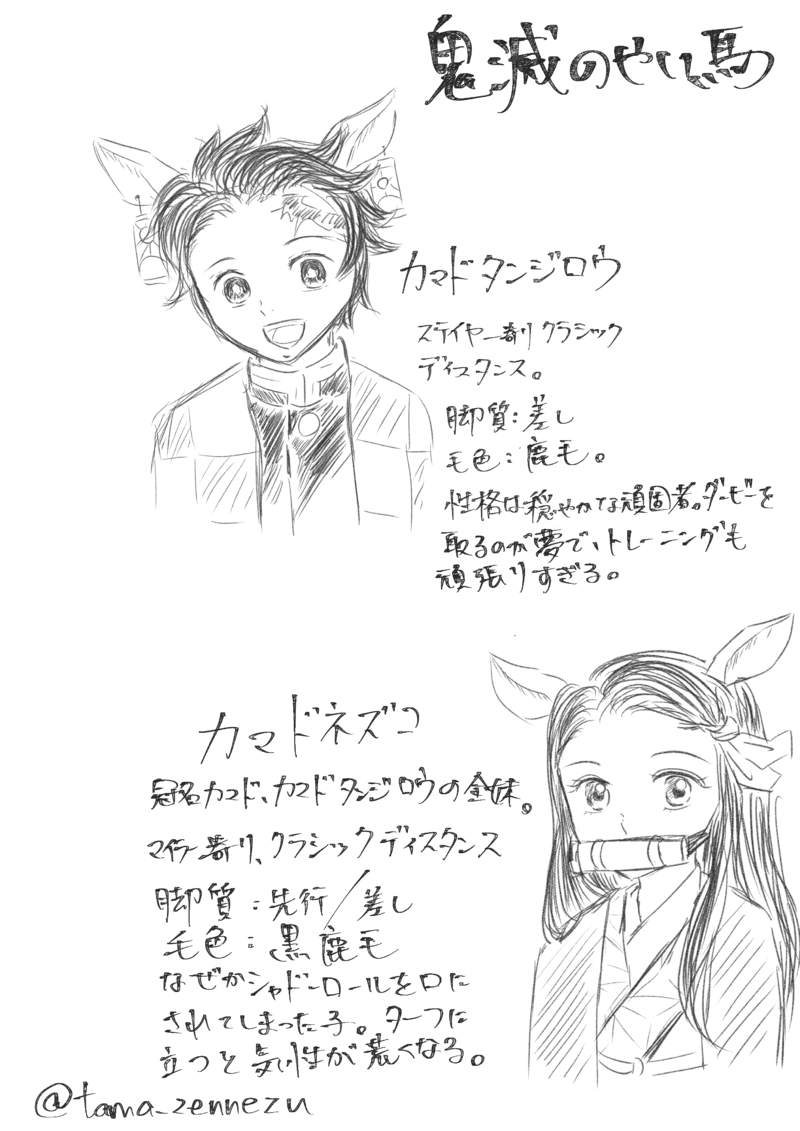 鬼滅のやいば馬
カマドタンジロウ
ステイヤー寄りクラシック
ディスタンス。
脚質:差し
毛色:鹿毛。
性格は穏やかな頑固者。ダービーを
取るのが夢で、トレーニングも
頑張りすぎる。
カマドネズコ
冠名カマド、カマドタンジロウの全妹。
マイラー寄り、クラシックディスタンス
脚質:先行/差し
毛色:黒鹿毛
なぜかシャドーロールを口に
されてしまった子。ターフに
立つと気性が荒くなる。
@tama_zennezu